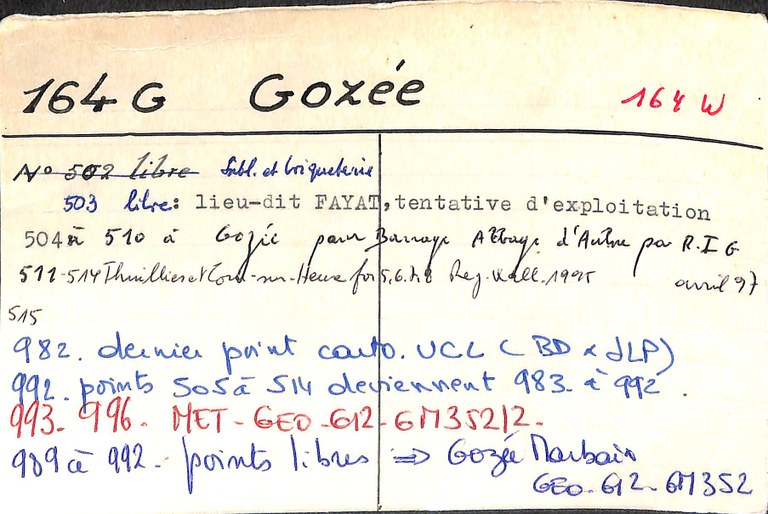 164 G Gozée 164 W
N° 502 libre Sabl. et briqueterie
503 libre: lieu-dit FAYAT, tentative d'exploitation
504 à 510 à Gozée pour Barrage Abbaye d'Aulne par R.I G
511-514 Thuillies et Cour-sur-Heure for 5.6.7.8 Reg. Wall. 1995 avril 97
515
982. dernier point carto. UCL (BD & JLP)
992. points 505 à 514 deviennent 983. à 992.
993. 996. MET - GEO - G12 - GM352/2-
989 à 992. points libres => Gozée Marbaix
GEO - G12 - GM352